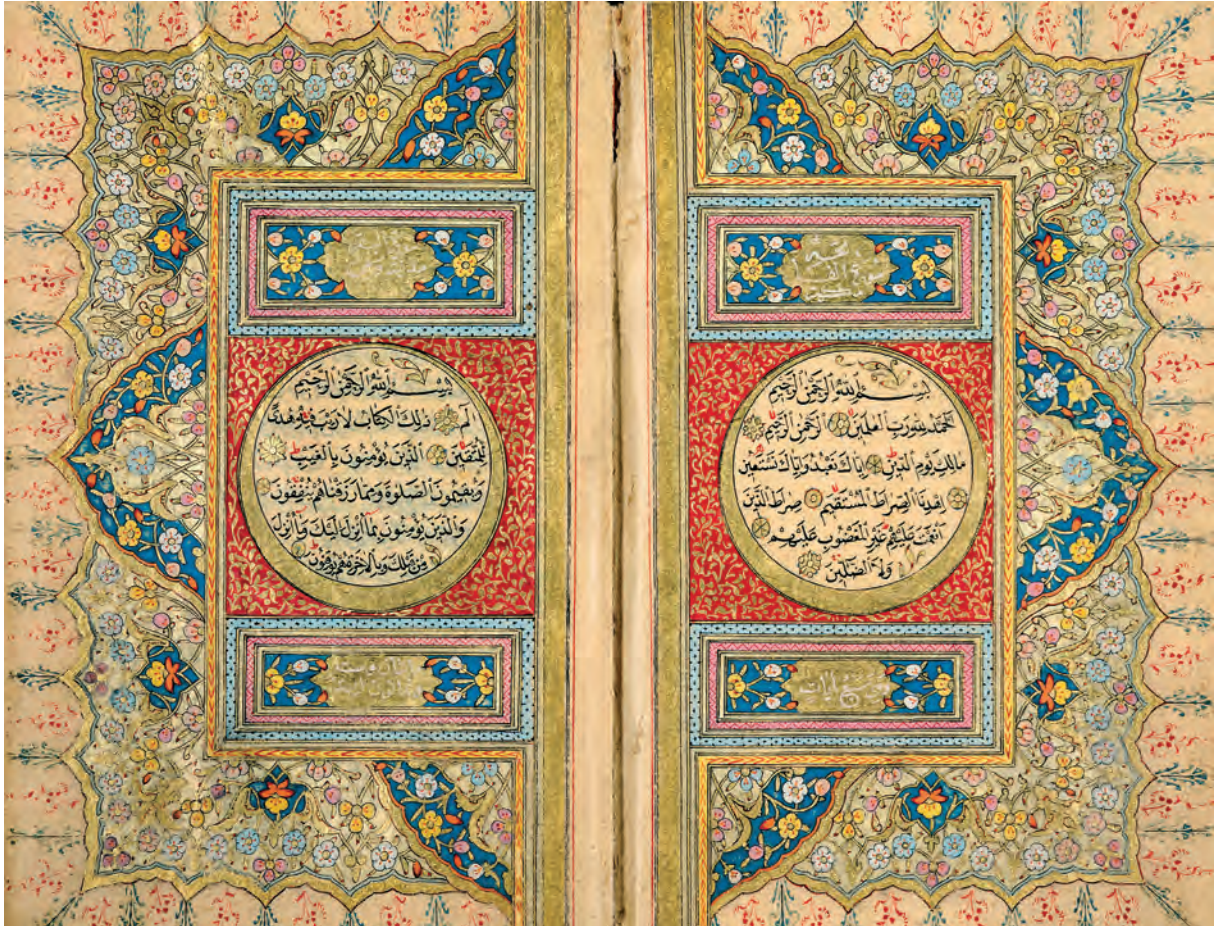 بسم الله الرحمن الرحيم
الحمد لله رب العلمين الرحمن الرحيم
مالك يوم الدين اياك نعبد واياك نستعين
اهدنا الصراط المستقيم صراط الذين
انعمت عليهم غير المغضوب عليهم
ولا الضالين
بسم الله الرحمن الرحيم
الم ذلك الكتاب لا ريب فيه هدى
للمتقين الذين يؤمنون بالغيب
ويقيمون الصلوة ومما رزقناهم ينفقون
والذين يؤمنون بما انزل اليك وما انزل
من قبلك وبالاخرة هم يوقنون